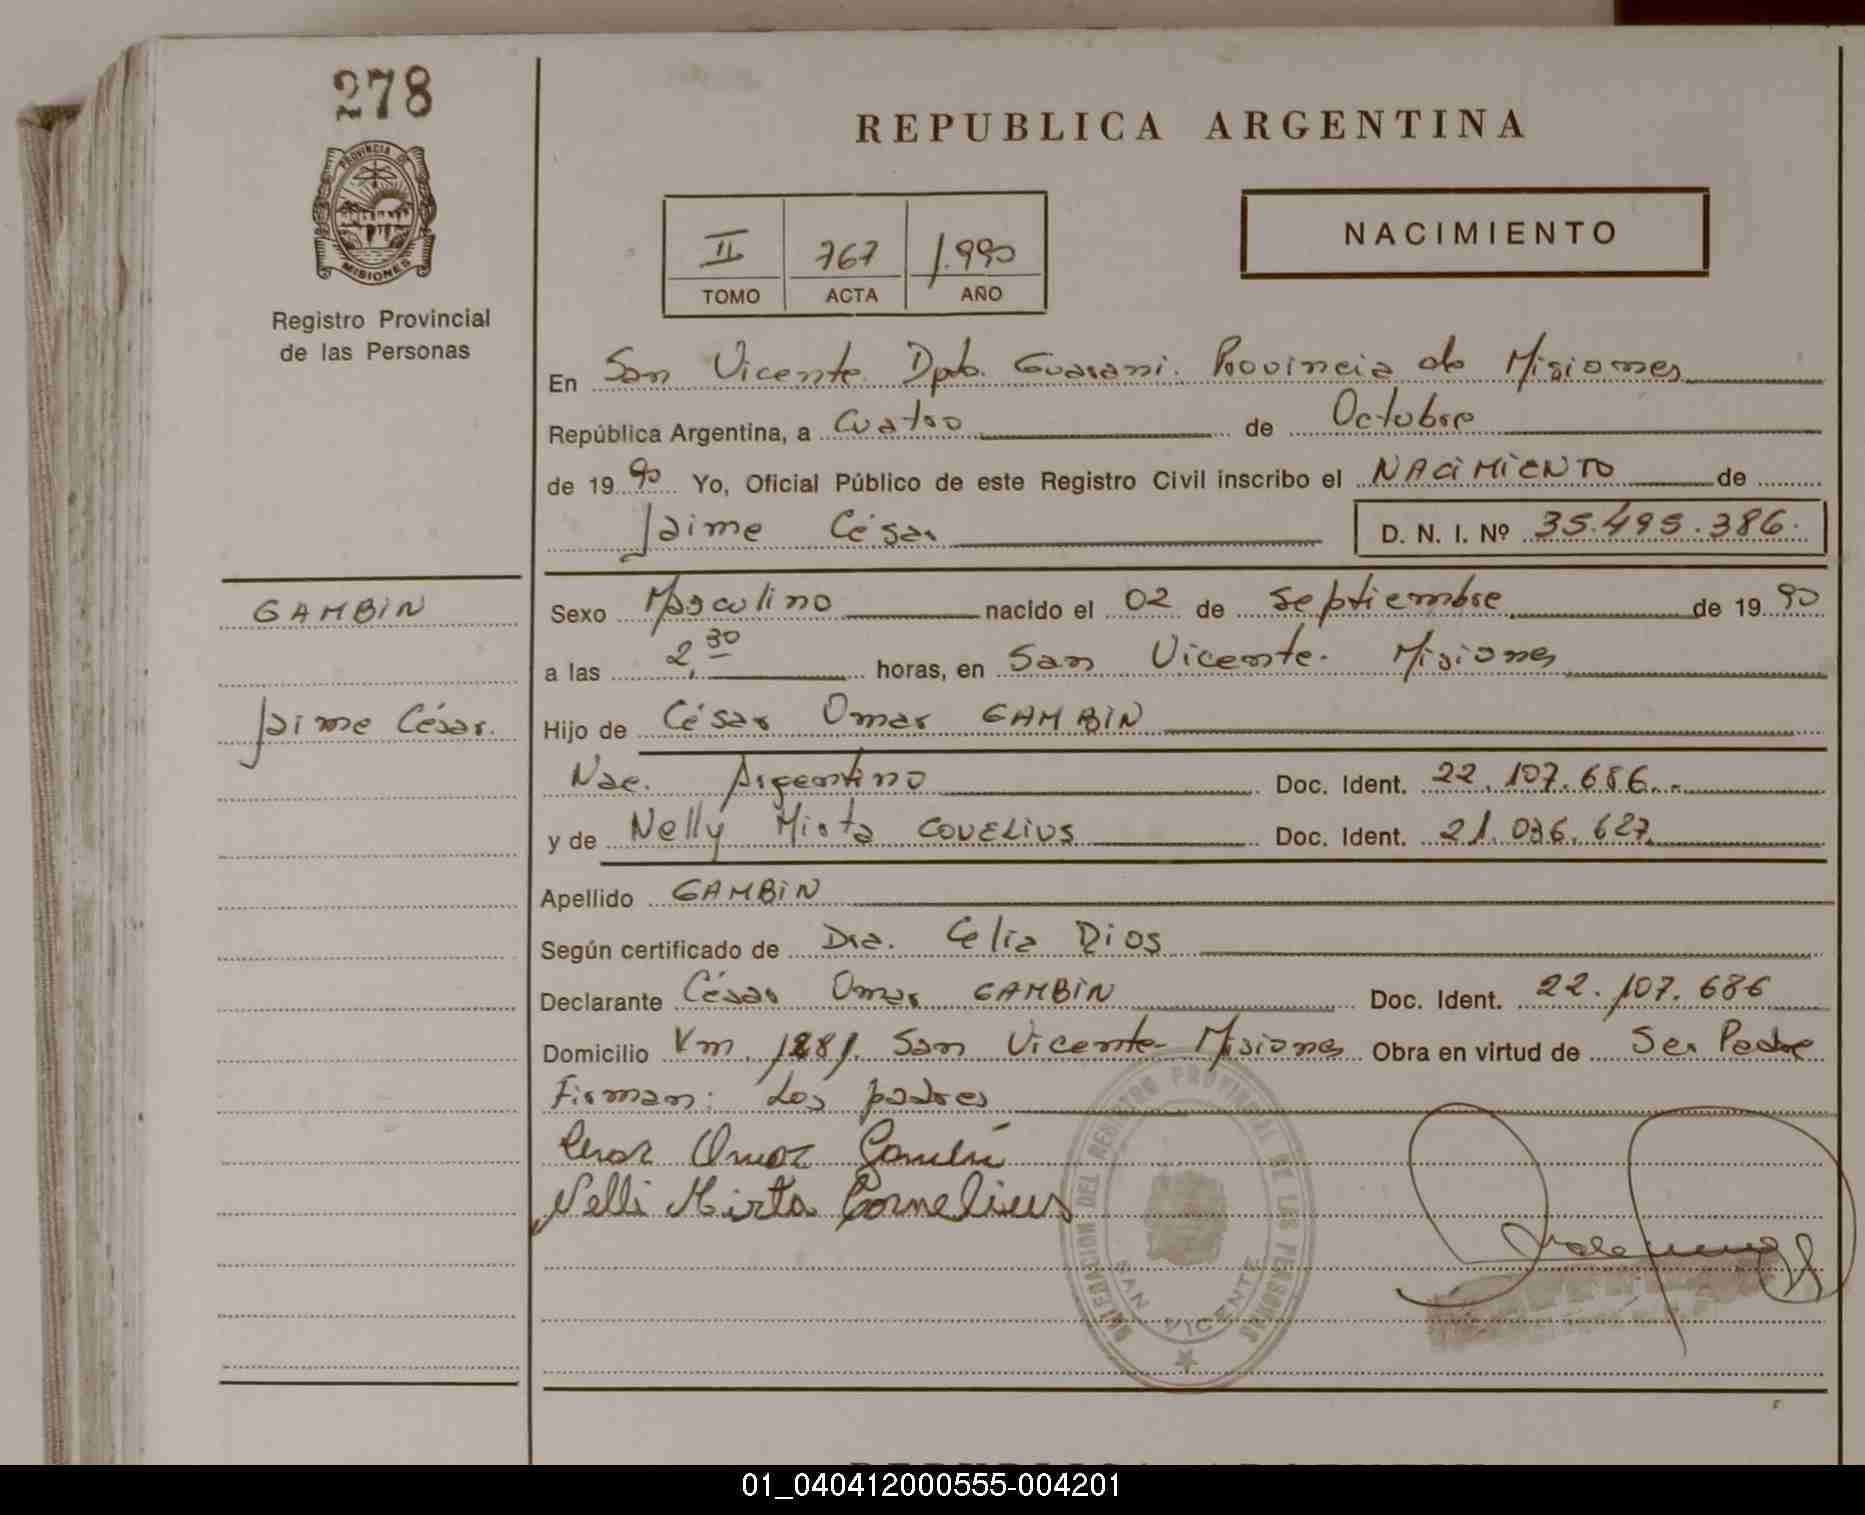 278
PROVINCIA DE
MISIONES
Registro Provincial
de las Personas
REPUBLICA ARGENTINA
II 767 1.990
TOMO ACTA AÑO
NACIMIENTO
En San Vicente Dpto. Guarani. Provincia de Misiones
República Argentina, a Cuatro de Octubre
de 19 90 Yo, Oficial Público de este Registro Civil inscribo el NACIMIENTO de
Jaime César D. N. I. Nº 35.495.386.
GAMBIN
Jaime César.
Sexo Masculino nacido el 02 de Septiembre de 19 90
a las 2,30 horas, en San Vicente. Misiones
Hijo de César Omar GAMBIN
Nac. Argentino Doc. Ident. 22.107.686.-
y de Nelly Mirta COVELIUS Doc. Ident. 21.036.627
Apellido GAMBIN
Según certificado de Dra. Celia Rios
Declarante César Omar GAMBIN Doc. Ident. 22.107.686
Domicilio Km. 1281. San Vicente- Misiones Obra en virtud de Ser Padre
Firman: Los padres
Cesar Omar Gambin
Nelli Mirta Cornelius
DELEGACION DEL REGISTRO PROVINCIAL DE LAS PERSONAS
SAN VICENTE
01_040412000555-004201